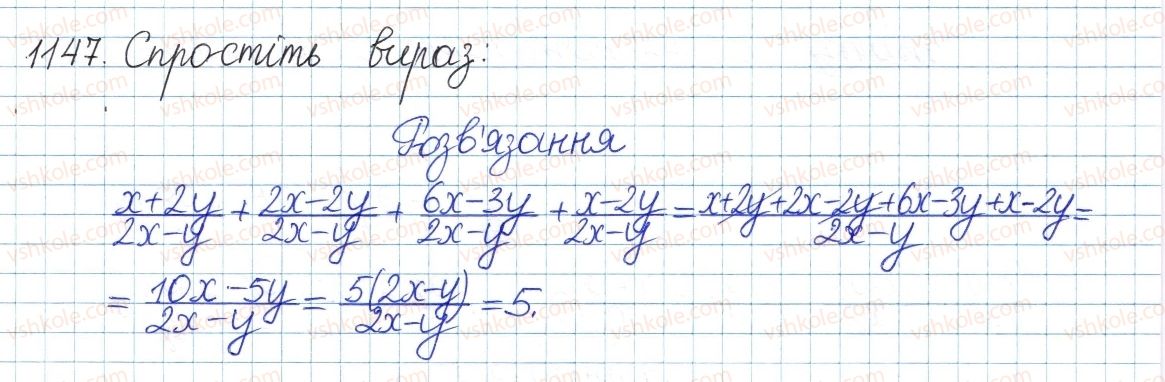 1147. Спростіть вираз:
Розв'язання
(x+2y)/(2x-y) + (2x-2y)/(2x-y) + (6x-3y)/(2x-y) + (x-2y)/(2x-y) = (x+2y+2x-2y+6x-3y+x-2y)/(2x-y) =
= (10x-5y)/(2x-y) = 5(2x-y)/(2x-y) = 5.
vshkole.com